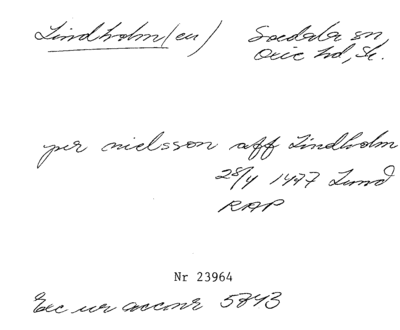 Lindholm(en) Svedala sn,
Oxie hd, Sk.
per nielsson aff Lindholm
28/4 1477 Lund
RAP
Nr 23964
Exc ur acconr 5843